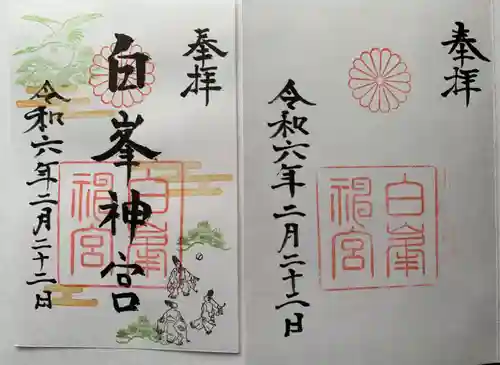 奉拝
白峯神宮
白峯神宮
令和六年二月二十二日
奉拝
白峯神宮
令和六年二月二十二日